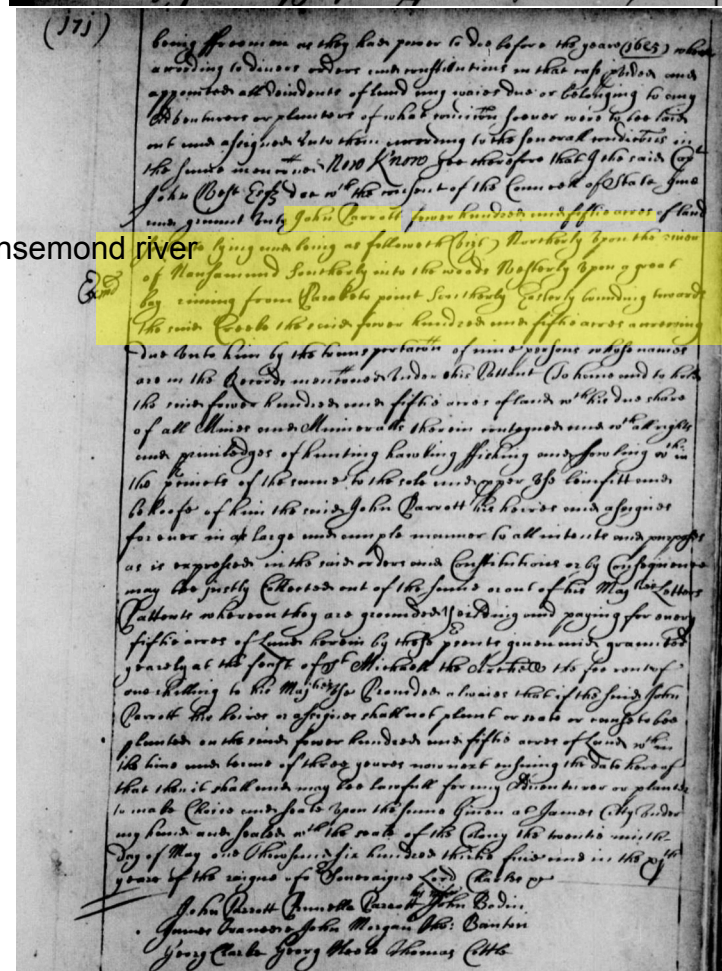 (171)
being ffreemen as they had power to doe before the yeare (1625) when
according to divers orders and constitutions in that case pvided and
appointed all devidents of land any waies due or belonging to any
Adventurers or planters of what condicon soever were to bee laid
out and assigned unto them according to the severall condicons in
the same menconed Now Know yee therefore that I the said Capt
John West Esqr doe wth the consent of the Councell of State give
and graunt unto John Parrott fower hundred and fiftie acres of land
lying and being as followeth (vizt) Northerly upon the river
nsemond river
of Nansamund Southerly into the woods Westerly upon y great
bay coming from Parrotts point Southerly Easterly bounding towards
the said Creeke the said fower hundred and fiftie acres accrewing
due unto him by the transportacon of nine persons whose names
are in the Records menconed under this Pattent To have and to hold
the said fower hundred and fiftie acres of land wth his due share
of all Mines and Mineralls therein conteyned and wth all rights
and priviledges of hunting hawking ffishing and fowling wthin
the precincts of the same to the sole and pper use benifitt and
behoofe of him the said John Parrott his heires and assignes
for ever in as large and ample manner to all intents and purposes
as is expressed in the said orders and Constitutions or by Consequence
may bee justly Collected out of the same or out of his Maties Letters
Pattents whereon they are grounded Yeilding and paying for every
fiftie acres of Land herein by these psents given and graunted
yearely at the feast of St Michaell the Archell the fee rent of
one shilling to his Maties use Provided alwaies that if the said John
Parrott his heires or assignes shall not plant or seate or cause to bee
planted on the said fower hundred and fiftie acres of Land wthin
the time and terme of three yeares now next ensuing the date hereof
that then it shall and may bee lawfull for any Adventurer or planter
to make Choice and seate upon the same Given at James Citty under
my hand and sealed wth the seale of the Colony the twentie ninth
day of May one thowsand six hundred thirtie five and in the
yeare of the raigne of or Soveraigne Lord Charles
John Parrott Parrott John Bodin
James John Morgan Tho: Banton
Georg Clarke Georg Thomas Cottle